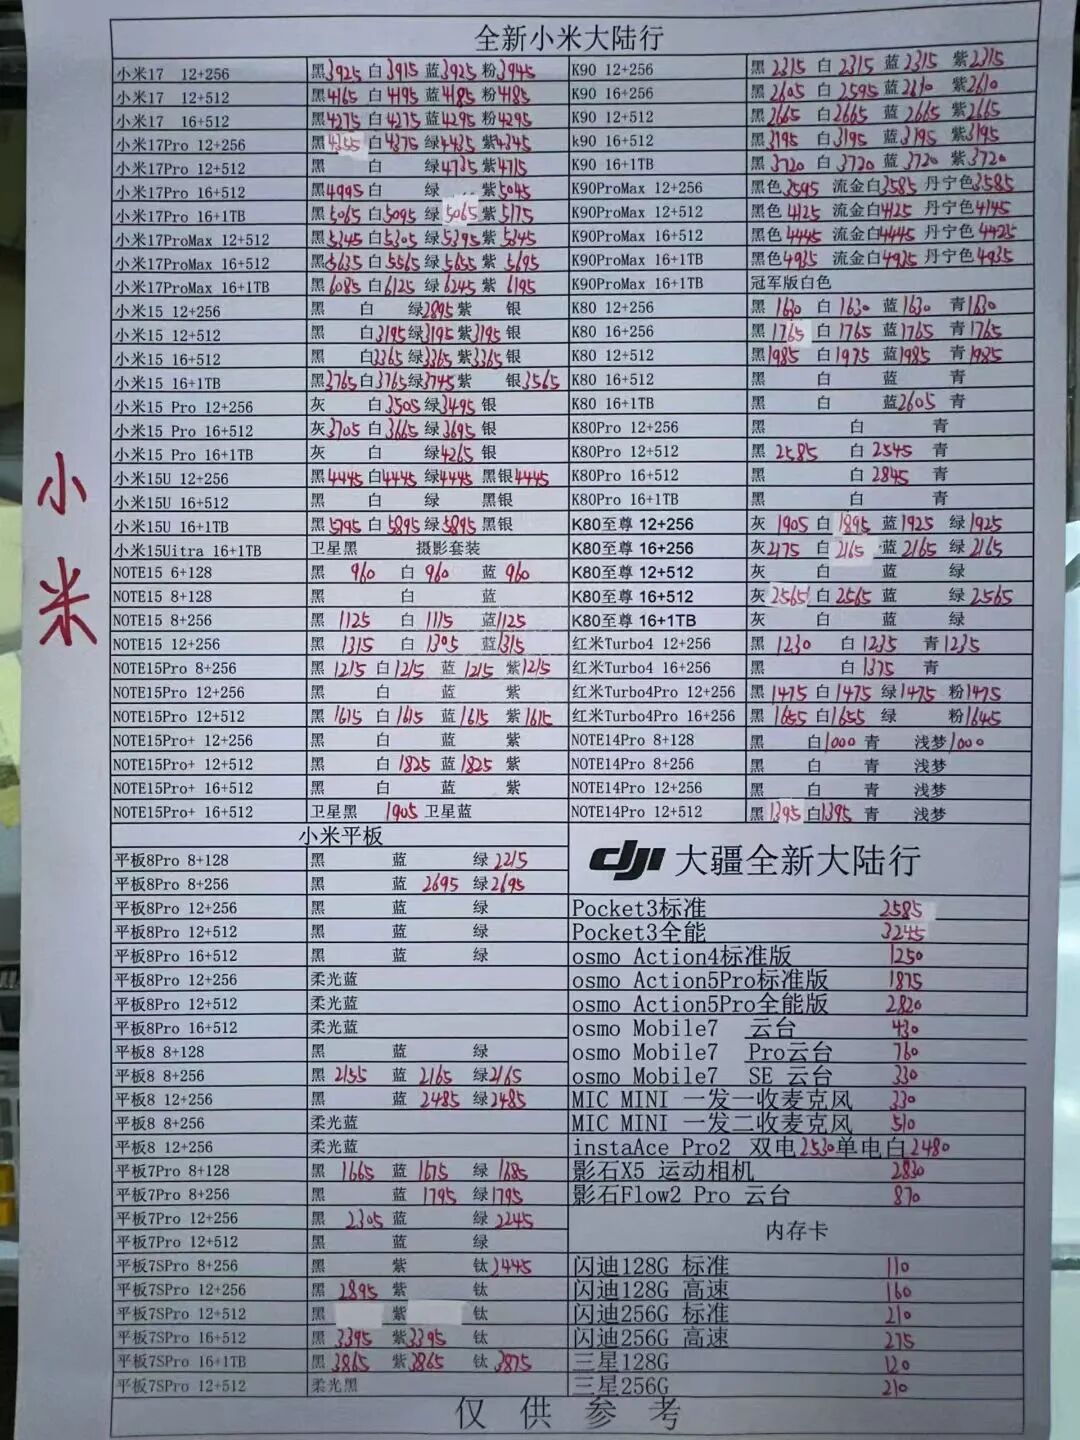 全新小米大陆行
小米17 12+256 黑3925 白3915 蓝3925 粉3945
小米17 12+512 黑4165 白4195 蓝4185 粉4185
小米17 16+512 黑4275 白4275 蓝4295 粉4295
小米17Pro 12+256 黑4355 白4375 绿4435 紫4345
小米17Pro 12+512 黑 白 绿4735 紫4715
小米17Pro 16+512 黑4995 白 绿 紫5045
小米17Pro 16+1TB 黑5065 白5095 绿5065 紫5175
小米17ProMax 12+512 黑5345 白5305 绿5395 紫5345
小米17ProMax 16+512 黑5635 白5565 绿5655 紫5695
小米17ProMax 16+1TB 黑6085 白6125 绿6245 紫6195
小米15 12+256 黑 白 绿2895 紫 银
小米15 12+512 黑 白3195 绿3195 紫3195 银
小米15 16+512 黑 白3365 绿3365 紫3365 银
小米15 16+1TB 黑3765 白3765 绿3745 紫 银3565
小米15 Pro 12+256 灰 白3505 绿3495 银
小米15 Pro 16+512 灰3705 白3665 绿3695 银
小米15 Pro 16+1TB 灰 白 绿4265 银
小米15U 12+256 黑4445 白4445 绿4445 黑银4445
小米15U 16+512 黑 白 绿 黑银
小米15U 16+1TB 黑5795 白5895 绿5895 黑银
小米15Uitra 16+1TB 卫星黑 摄影套装
NOTE15 6+128 黑 960 白 960 蓝 960
NOTE15 8+128 黑 白 蓝
NOTE15 8+256 黑 1125 白 1115 蓝1125
NOTE15 12+256 黑 1315 白 1305 蓝1315
NOTE15Pro 8+256 黑 1215 白1215 蓝 1215 紫1215
NOTE15Pro 12+256 黑 白 蓝 紫
NOTE15Pro 12+512 黑 1615 白 1615 蓝1615 紫1615
NOTE15Pro+ 12+256 黑 白 蓝 紫
NOTE15Pro+ 12+512 黑 白1825 蓝1825 紫
NOTE15Pro+ 16+512 黑 白 蓝 紫
NOTE15Pro+ 16+512 卫星黑 1905 卫星蓝
K90 12+256 黑 2315 白 2315 蓝2315 紫2315
K90 16+256 黑2605 白 2595 蓝2610 紫2610
K90 12+512 黑2665 白2665 蓝 2665 紫2665
k90 16+512 黑3195 白3195 蓝3195 紫3195
K90 16+1TB 黑3720 白3720 蓝3720 紫3720
K90ProMax 12+256 黑色3595 流金白3585 丹宁色3585
K90ProMax 12+512 黑色 4125 流金白4125 丹宁色4145
K90ProMax 16+512 黑色4445 流金白4445 丹宁色4425
K90ProMax 16+1TB 黑色4935 流金白4925 丹宁色4935
K90ProMax 16+1TB 冠军版白色
K80 12+256 黑 1630 白 1630 蓝1630 青1630
K80 16+256 黑1765 白1765 蓝1765 青1765
K80 12+512 黑1985 白1975 蓝1985 青1985
K80 16+512 黑 白 蓝 青
K80 16+1TB 黑 白 蓝2605 青
K80Pro 12+256 黑 白 青
K80Pro 12+512 黑 2585 白 2545 青
K80Pro 16+512 黑 白 2845 青
K80Pro 16+1TB 黑 白 青
K80至尊 12+256 灰 1905 白 1895 蓝1925 绿1925
K80至尊 16+256 灰2175 白2165 蓝2165 绿 2165
K80至尊 12+512 灰 白 蓝 绿
K80至尊 16+512 灰 2565 白 2565 蓝 绿 2565
K80至尊 16+1TB 灰 白 蓝 绿
红米Turbo4 12+256 黑 1230 白 1235 青1235
红米Turbo4 16+256 黑 白 1375 青
红米Turbo4Pro 12+256 黑1475 白1475 绿1475 粉1475
红米Turbo4Pro 16+256 黑1655 白1655 绿 粉1645
NOTE14Pro 8+128 黑 白1000 青 浅梦1000
NOTE14Pro 8+256 黑 白 青 浅梦
NOTE14Pro 12+256 黑 白 青 浅梦
NOTE14Pro 12+512 黑1395 白1395 青 浅梦
小
米
小米平板
平板8Pro 8+128 黑 蓝 绿2215
平板8Pro 8+256 黑 蓝 2695 绿2695
平板8Pro 12+256 黑 蓝 绿
平板8Pro 12+512 黑 蓝 绿
平板8Pro 16+512 黑 蓝 绿
平板8Pro 12+256 柔光蓝
平板8Pro 12+512 柔光蓝
平板8Pro 16+512 柔光蓝
平板8 8+128 黑 蓝 绿
平板8 8+256 黑 2155 蓝 2165 绿2165
平板8 12+256 黑 蓝 2485 绿2485
平板8 8+256 柔光蓝
平板8 12+256 柔光蓝
平板7Pro 8+128 黑 1665 蓝 1675 绿 1685
平板7Pro 8+256 黑 蓝 1795 绿1795
平板7Pro 12+256 黑 2305 蓝 绿 2245
平板7Pro 12+512 黑 蓝 绿
平板7SPro 8+256 黑 紫 钛2445
平板7SPro 12+256 黑 2895 紫 钛
平板7SPro 12+512 黑 紫 钛
平板7SPro 16+512 黑 3395 紫3395 钛
平板7SPro 16+1TB 黑 3865 紫3865 钛 3875
平板7SPro 12+512 柔光黑
dji 大疆全新大陆行
Pocket3标准 2585
Pocket3全能 3245
osmo Action4标准版 1250
osmo Action5Pro标准版 1875
osmo Action5Pro全能版 2820
osmo Mobile7 云台 430
osmo Mobile7 Pro云台 760
osmo Mobile7 SE 云台 330
MIC MINI 一发一收麦克风 330
MIC MINI 一发二收麦克风 510
instaAce Pro2 双电2530单电白2480
影石X5 运动相机 2830
影石Flow2 Pro 云台 870
内存卡
闪迪128G 标准 110
闪迪128G 高速 160
闪迪256G 标准 210
闪迪256G 高速 275
三星128G 120
三星256G 210
仅供参考